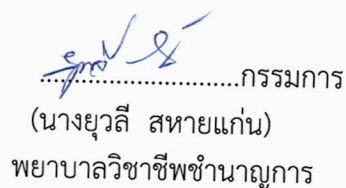 ..............................กรรมการ
(นางยุวลี สหายแก่น)
พยาบาลวิชาชีพชำนาญการ